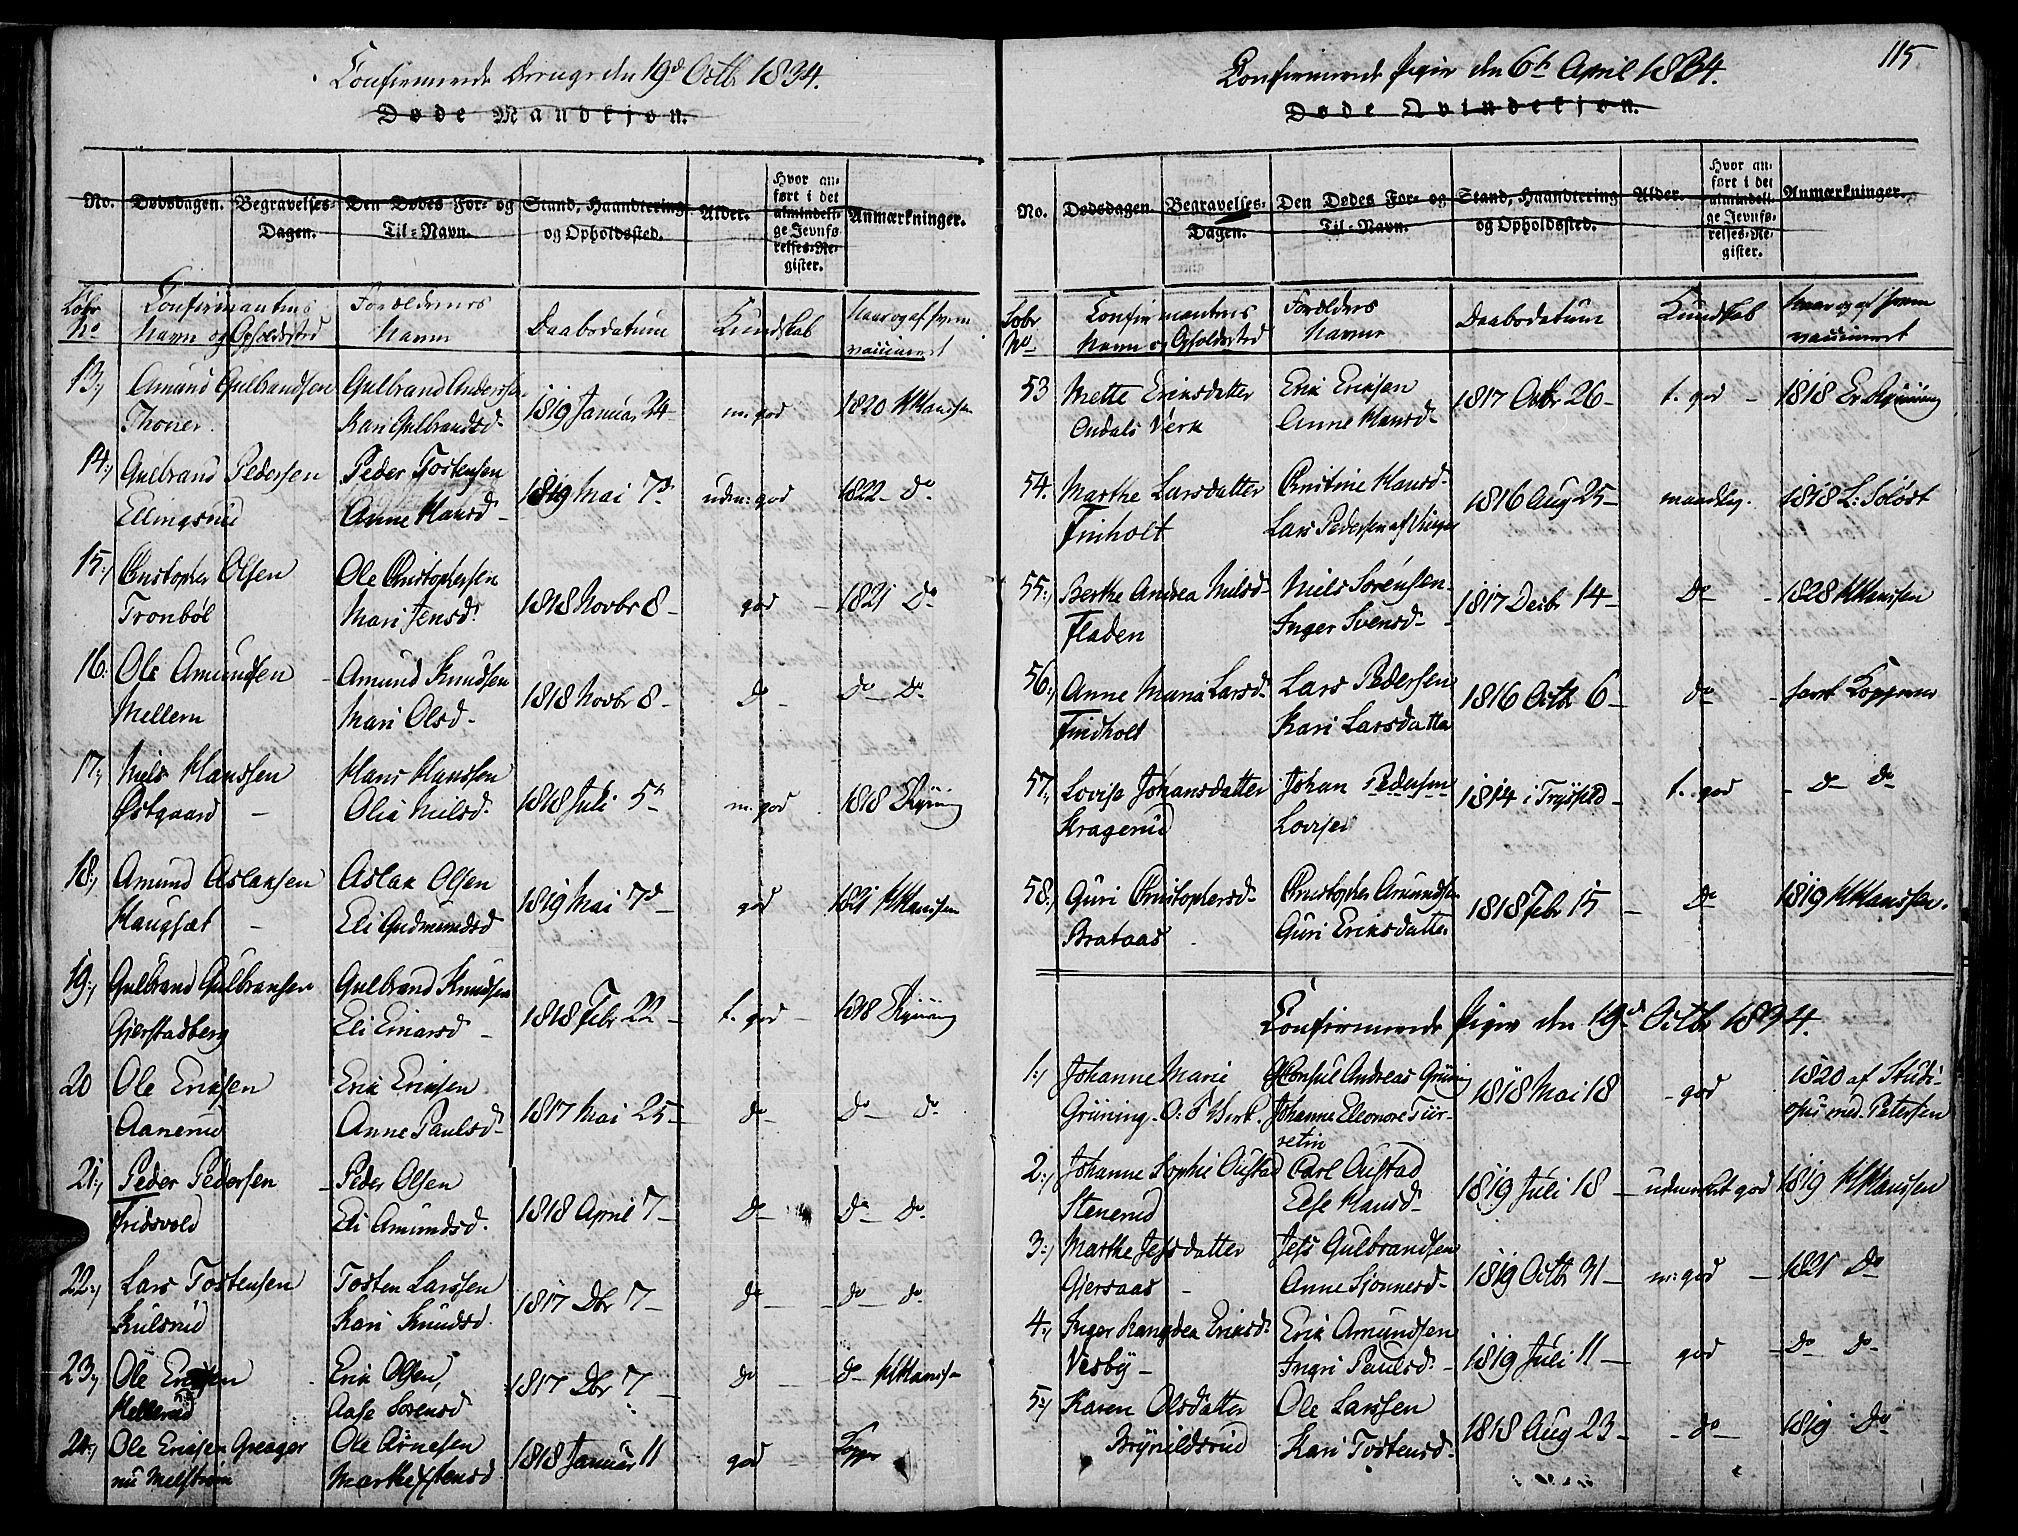 Confirmerede Drenge den 19d Octb 1834.
Døde Mandkjøn.
No. Dødsdagen. Begravelses-Dagen. Den Dødes For- og Til-Navn. Stand, Haandtering og Opholdssted. Alder. Hvor anført i det almindelige Jevnførelses-Register. Anmærkninger.
Løbe No Confirmantens Navn og Opholdsted Forældrenes Navne Daabsdatum Kundskab Naar og af hvem vaccineret
13:/ Amund Gulbrandsen Gulbrand Andersen 1819 Januar 24 m: god 1820 KHanssen
Thorier. Kari Gulbrandsd.
14:/ Gulbrand Pedersen Peder Tostensen 1819 Mai 7d udm: god 1822 - do
Ellingsrud Anne Hansd -
15:/ Christopher Olsen Ole Christophersen 1818 Novbr 8 - god - 1821 Do
Tronbøl Mari Jensd.
16: Ole Amundsen - Amund Knudsen 1818 Novbr 8 - Do - Do - Do
Mellem Mari Olsd -
17:/ Niels Hanssen Hans Hanssen 1818 Juli 5t m: god 1818 Ryning
Østgaard - Olia Nielsd.
18:/ Amund Aslaksen Aslak Olsen 1819 Mai 7d - god 1821 KHanssen
Haugsæt - Eli Gudmundsd
19:/ Gulbrand Gulbransen Gulbrand Knudsen 1818 Febr 22 - t. god - 1818 Ryning
Gjerstadberg Eli Einarsd -
20 Ole Eriksen Erik Eriksen 1817 Mai 25 - do Do - do
Aanerud Anne Paulsd -
21:/ Peder Pedersen - Peder Olsen 1818 April 7 - do - Do - Do
Fridsvold Eli Amundsd.
22:/ Lars Tostensen Tosten Larssen 1817 Dbr 7 - do - Do - do
Kulsrud Kari Knudsd.
23:/ Ole Eriksen Erik Olsen, 1817 Dbr 7 - do - Do - KHanssen
Hellerud Aase Sørensd
24:/ Ole Ericsen Greager Ole Arnesen 1818 Januar 11 god - Kopper
nu Melstrøm Marthe Ostensd
115
Confirmerede Piger den 6t April 1834.
Døde Qvindekjøn.
No. Dødsdagen Begravelses-Dagen. Den Dødes For- og Til-Navn. Stand, Haandtering og Opholdssted. Alder. Hvor anført i det almindelige Jevnførelses-Register. Anmærkninger.
Løbe No Confirmantens Navn og Opholdsted Forældres Navne Daabsdatum Kundskab Naar og af hvem vaccineret
53 Mette Eriksdatter Erik Eriksen 1817 Octbr 26 - t. god - 1818 Er. Ryning
Odals Værk Anne Hansd -
54. Marthe Larsdatter Christine Hansd - 1816 Aug 25 - maadelig. 1818 L: Soløst
Finholt Lars Pedersen af Vinger
55:/ Berthe Andrea Nielsd - Niels Sørensen - 1817 Decbr 14 - Do - 1828 KHanssen
Fladen Inger Svensd -
56:/ Anne Maria Larsd - Lars Pedersen 1816 Octb 6 - do - havt Kopperne
Findholt Kari Larsdatter
57:/ Lovise Johansdatter Johan Pedersen 1814 i Trysild - t. god - Do - Do
Kragerud Lovise
58:/ Guri Christophersd - Christopher Amundsen 1818 Febr 15 - Do 1819 KHanssen.
Brataas - Guri Eriksdatter
Confirmerede Piger den 19d Octbr 1834.
1:/ Johanne Marie Consul Andreas Grüning 1818 Mai 18 - god 1820 af Studi-
Grüning. O: V Værk. Johanne Elleonore Tür- osus med. Petersen
retin
2:/ Johanne Sophie Austad Carl Austad 1819 Juli 18 - udmærket god 1819 KHanssen
Stenerud Else Hansd -
3:/ Marthe Jessdatter Jess Gulbrandsen 1819 Octb 31 - m: god - 1821 Do
Gjersaas - Anne Sjonnesd -
4:/ Inger Rangdea Eriksd. Erik Amundsen 1819 Juli 11 - god - Do - Do
Vesby - Ingri Paulsd -
5:/ Karen Olsdatter Ole Larssen 1818 Aug 23 - - do - 1819 Do
Brynildsrud Kari Tostensd -